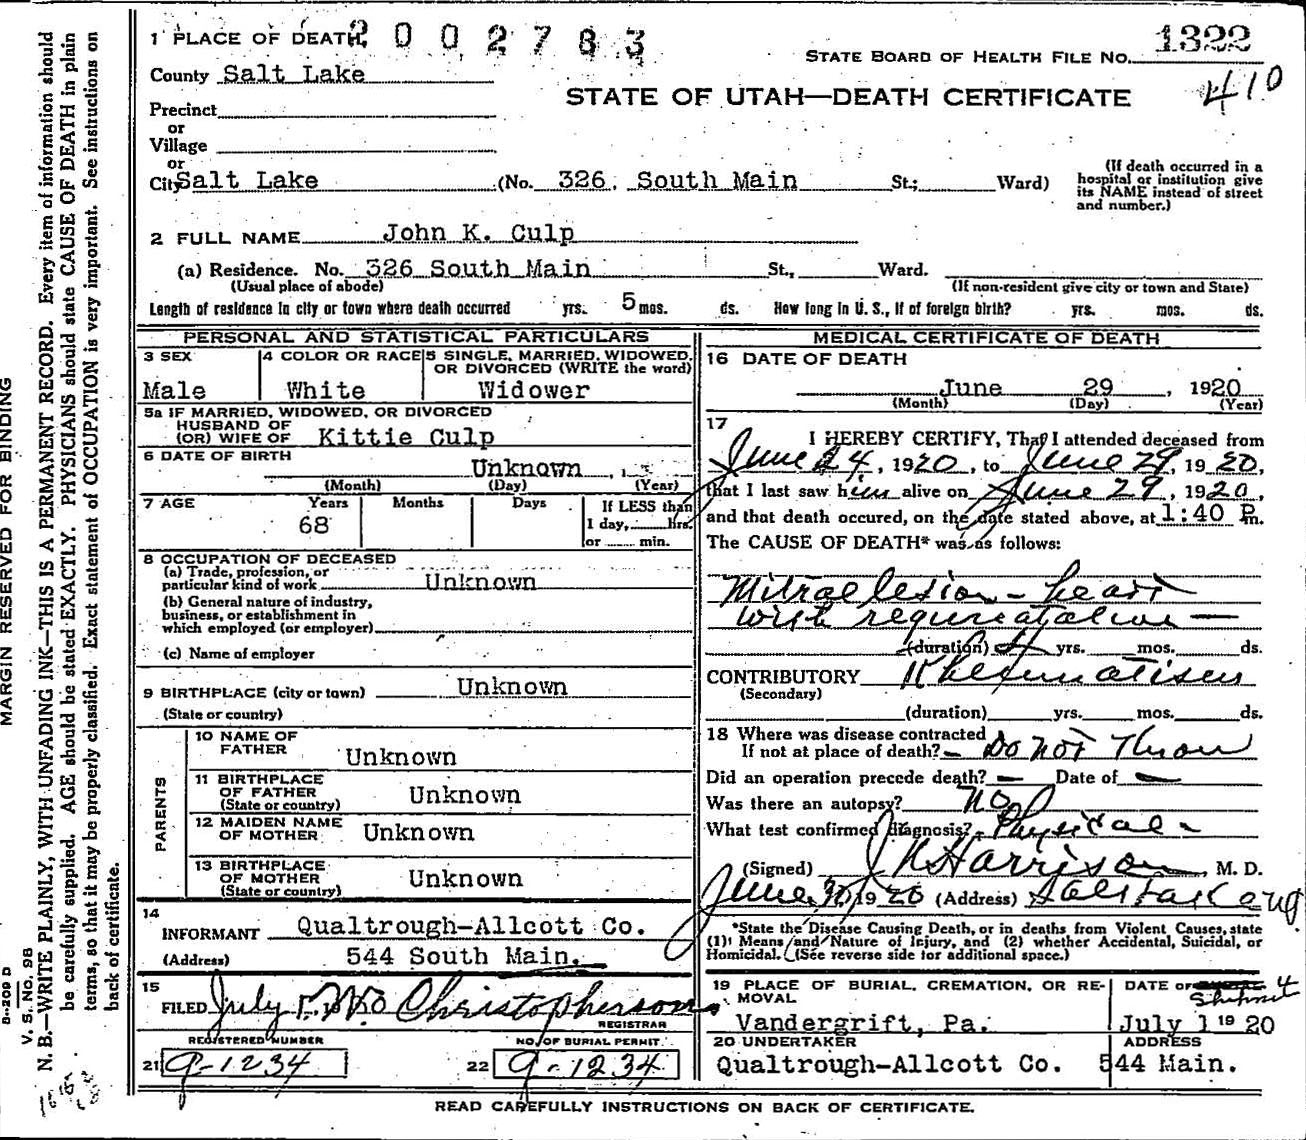 1 PLACE OF DEATH, 2 0 0 2 7 8 3
STATE BOARD OF HEALTH FILE No. 1322
410
County Salt Lake
STATE OF UTAH—DEATH CERTIFICATE
Precinct
or
Village
or
City Salt Lake (No. 326 South Main St.; Ward)
(If death occurred in a
hospital or institution give
its NAME instead of street
and number.)
2 FULL NAME John K. Culp
(a) Residence. No. 326 South Main St., Ward.
(Usual place of abode) (If non-resident give city or town and State)
Length of residence in city or town where death occurred yrs. 5 mos. ds. How long in U. S., if of foreign birth? yrs. mos. ds.
PERSONAL AND STATISTICAL PARTICULARS
3 SEX
Male
4 COLOR OR RACE
White
5 SINGLE, MARRIED, WIDOWED,
OR DIVORCED (WRITE the word)
Widower
5a IF MARRIED, WIDOWED, OR DIVORCED
HUSBAND OF
(OR) WIFE OF Kittie Culp
6 DATE OF BIRTH
Unknown
(Month) (Day) (Year)
7 AGE
Years Months Days
68
If LESS than
1 day, hrs.
or min.
8 OCCUPATION OF DECEASED
(a) Trade, profession, or
particular kind of work Unknown
(b) General nature of industry,
business, or establishment in
which employed (or employer)
(c) Name of employer
9 BIRTHPLACE (city or town) Unknown
(State or country)
PARENTS
10 NAME OF
FATHER Unknown
11 BIRTHPLACE
OF FATHER Unknown
(State or country)
12 MAIDEN NAME
OF MOTHER Unknown
13 BIRTHPLACE
OF MOTHER Unknown
(State or country)
14
INFORMANT Qualtrough-Allcott Co.
(Address) 544 South Main.
15
FILED July Christopherson
REGISTRAR
REGISTERED NUMBER NO. OF BURIAL PERMIT.
21 9-1234 22 9-1234
MEDICAL CERTIFICATE OF DEATH
16 DATE OF DEATH
June 29, 1920
(Month) (Day) (Year)
17
I HEREBY CERTIFY, That I attended deceased from
June 24, 1920, to June 29, 1920,
that I last saw him alive on June 29, 1920,
and that death occured, on the date stated above, at 1:40 P. m.
The CAUSE OF DEATH* was as follows:
Mitral lesion - heart
with regurgitation —
(duration) yrs. mos. ds.
CONTRIBUTORY Rheumatism
(Secondary)
(duration) yrs. mos. ds.
18 Where was disease contracted
If not at place of death? — Do not Know
Did an operation precede death? — Date of —
Was there an autopsy? No
What test confirmed diagnosis? Physical
(Signed) Harrison, M. D.
June 30 1920 (Address) Salt Lake City
*State the Disease Causing Death, or in deaths from Violent Causes, state
(1) Means and Nature of Injury, and (2) whether Accidental, Suicidal, or
Homicidal. (See reverse side for additional space.)
19 PLACE OF BURIAL, CREMATION, OR RE-
MOVAL
Vandergrift, Pa.
DATE OF
Shipment
July 1 1920
20 UNDERTAKER
Qualtrough-Allcott Co.
ADDRESS
544 Main.
READ CAREFULLY INSTRUCTIONS ON BACK OF CERTIFICATE.
MARGIN RESERVED FOR BINDING
V. S. No. 98
N. B.—WRITE PLAINLY, WITH UNFADING INK—THIS IS A PERMANENT RECORD. Every item of information should
be carefully supplied. AGE should be stated EXACTLY. PHYSICIANS should state CAUSE OF DEATH in plain
terms, so that it may be properly classified. Exact statement of OCCUPATION is very important. See instructions on
back of certificate.